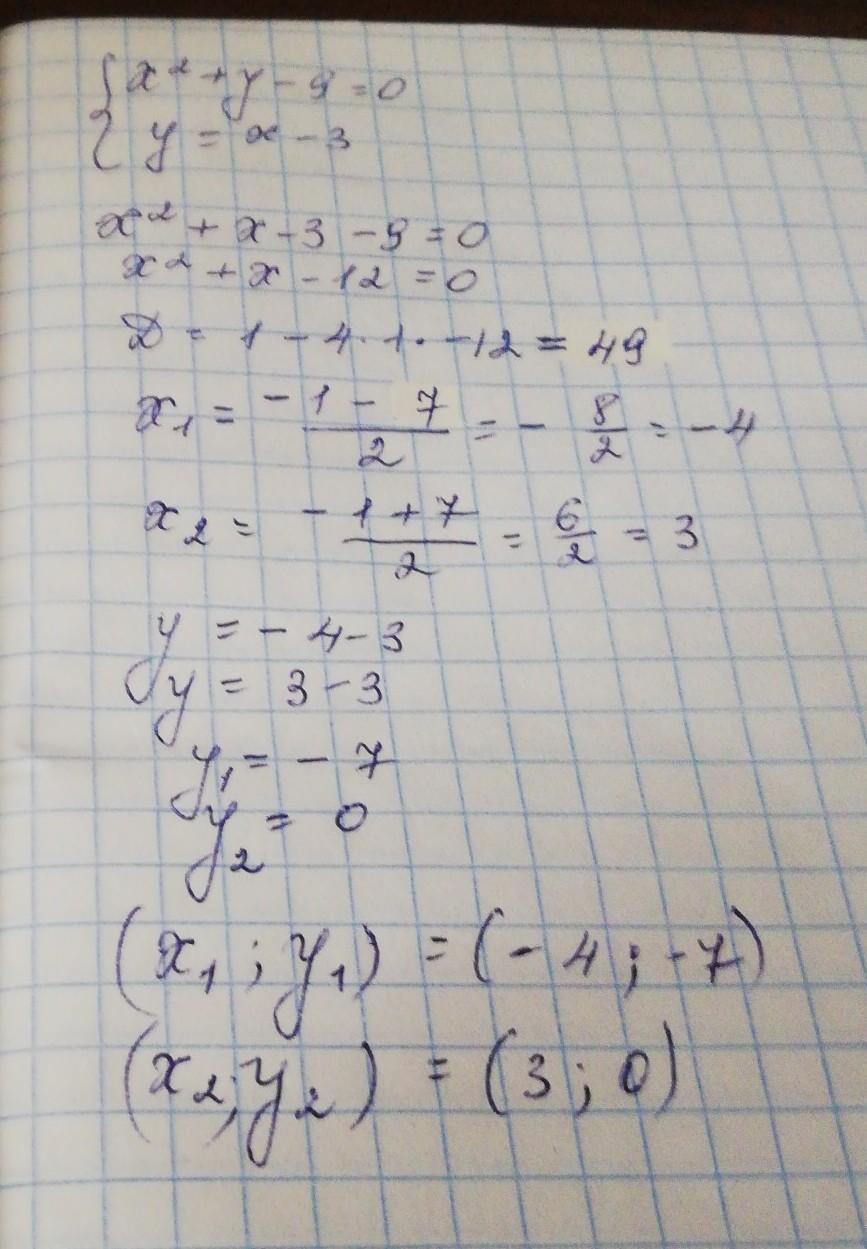 { x² + y - 9 = 0
{ y = x - 3
x² + x - 3 - 9 = 0
x² + x - 12 = 0
D = 1 - 4 · 1 · -12 = 49
x₁ = (-1 - 7)/2 = - 8/2 = -4
x₂ = (-1 + 7)/2 = 6/2 = 3
y = - 4 - 3
y = 3 - 3
y₁ = - 7
y₂ = 0
(x₁ ; y₁) = (- 4 ; -7)
(x₂ ; y₂) = (3 ; 0)